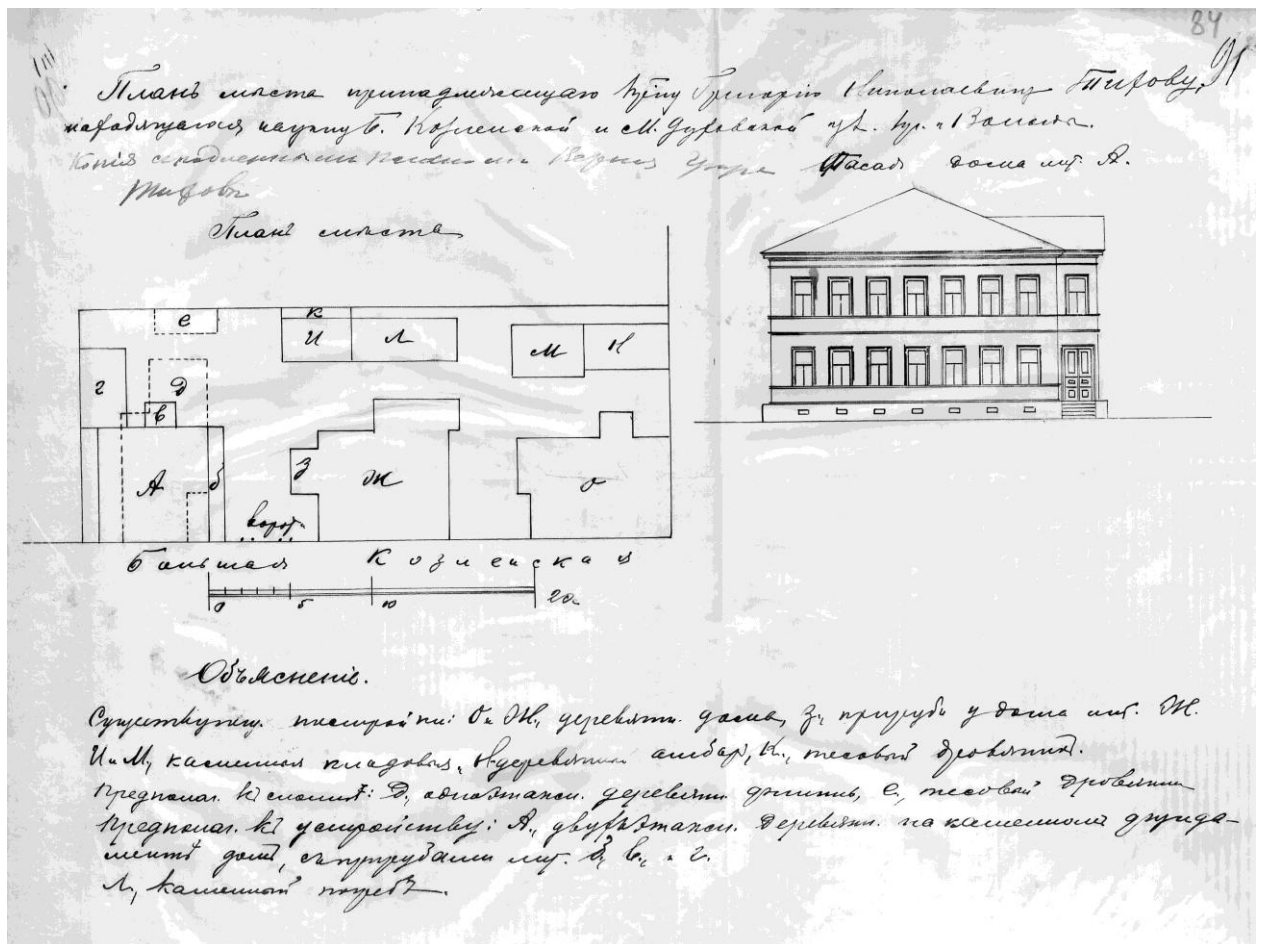 84
91
Планъ мѣста принадлежащаго купцу Григорію Николаевичу Тифову,
находящагося на углу Б. Козленской и М. Духовской ул. гор. Вологды.
Копія съ подлиннымъ
Фасадъ дома лит. А.
Планъ мѣста
е
К
И
Л
М
Н
г
Д
в
А
б
З
Ж
О
ворота
Большая Козленская
0 5 10 20
Объясненіе.
Существующ. постройки: О и Ж, деревянн. дома, З, прирубъ у дома лит. Ж.
И и М, каменная кладовая, Н деревянный амбаръ, К, тесовый дровяникъ.
Предполаг. къ сломкѣ: Д, одноэтажн. деревянн. флигель, е, тесовый дровяникъ
Предполаг. къ устройству: А, двухъэтажн. деревянн. на каменномъ фунда-
ментѣ домъ, съ прирубами лит. б, в, и г.
Л, каменный погребъ.